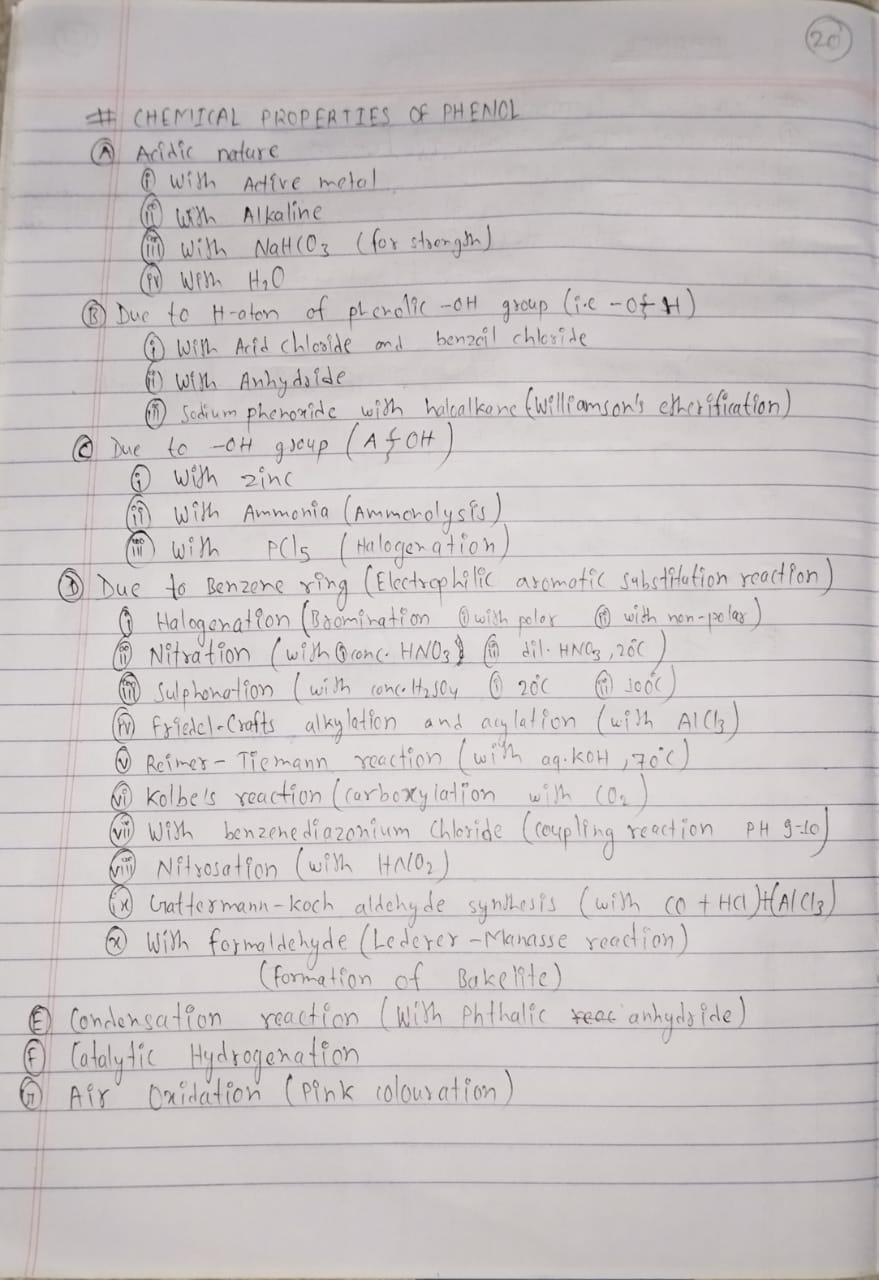 20
# CHEMICAL PROPERTIES OF PHENOL
Ⓐ Acidic nature
ⓘ With Active metal
(ii) With Alkaline
(iii) With NaHCO3 (for strength)
(iv) With H2O
Ⓑ Due to H-atom of phenolic -OH group (i.e -O⨍H)
(i) With Acid chloride and benzoil chloride
(ii) With Anhydride
(iii) Sodium phenoxide with haloalkane (Williamson's etherification)
Ⓒ Due to -OH group (A⨍OH)
(i) With zinc
(ii) With Ammonia (Ammonolysis)
(iii) With PCl5 (Halogenation)
Ⓓ Due to Benzene ring (Electrophilic aromatic substitution reaction)
(i) Halogenation (Bromination (i) with polar (ii) with non-polar)
(ii) Nitration (with (i) conc. HNO3 (ii) dil. HNO3, 20°C)
(iii) Sulphonation (with conc. H2SO4 (i) 20°C (ii) 100°C)
(iv) Friedel-Crafts alkylation and acylation (with AlCl3)
(v) Reimer-Tiemann reaction (with aq. KOH, 70°C)
(vi) Kolbe's reaction (carboxylation with CO2)
(vii) With benzenediazonium chloride (coupling reaction PH 9-10)
(viii) Nitrosation (with HNO2)
(ix) Gattermann-Koch aldehyde synthesis (with CO + HCl)+(AlCl3)
(x) With formaldehyde (Lederer-Manasse reaction)
(formation of Bakelite)
Ⓔ Condensation reaction (With Phthalic anhydride)
Ⓕ Catalytic Hydrogenation
Ⓖ Air Oxidation (Pink colouration)